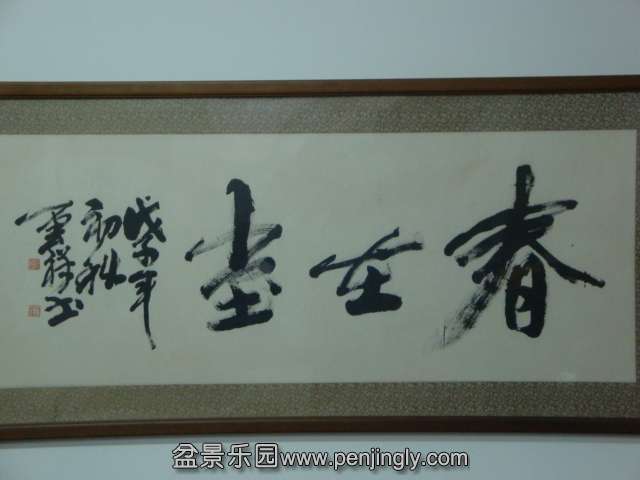 春在堂
戊子年
初秋
祥书
盆景乐园www.penjingly.com